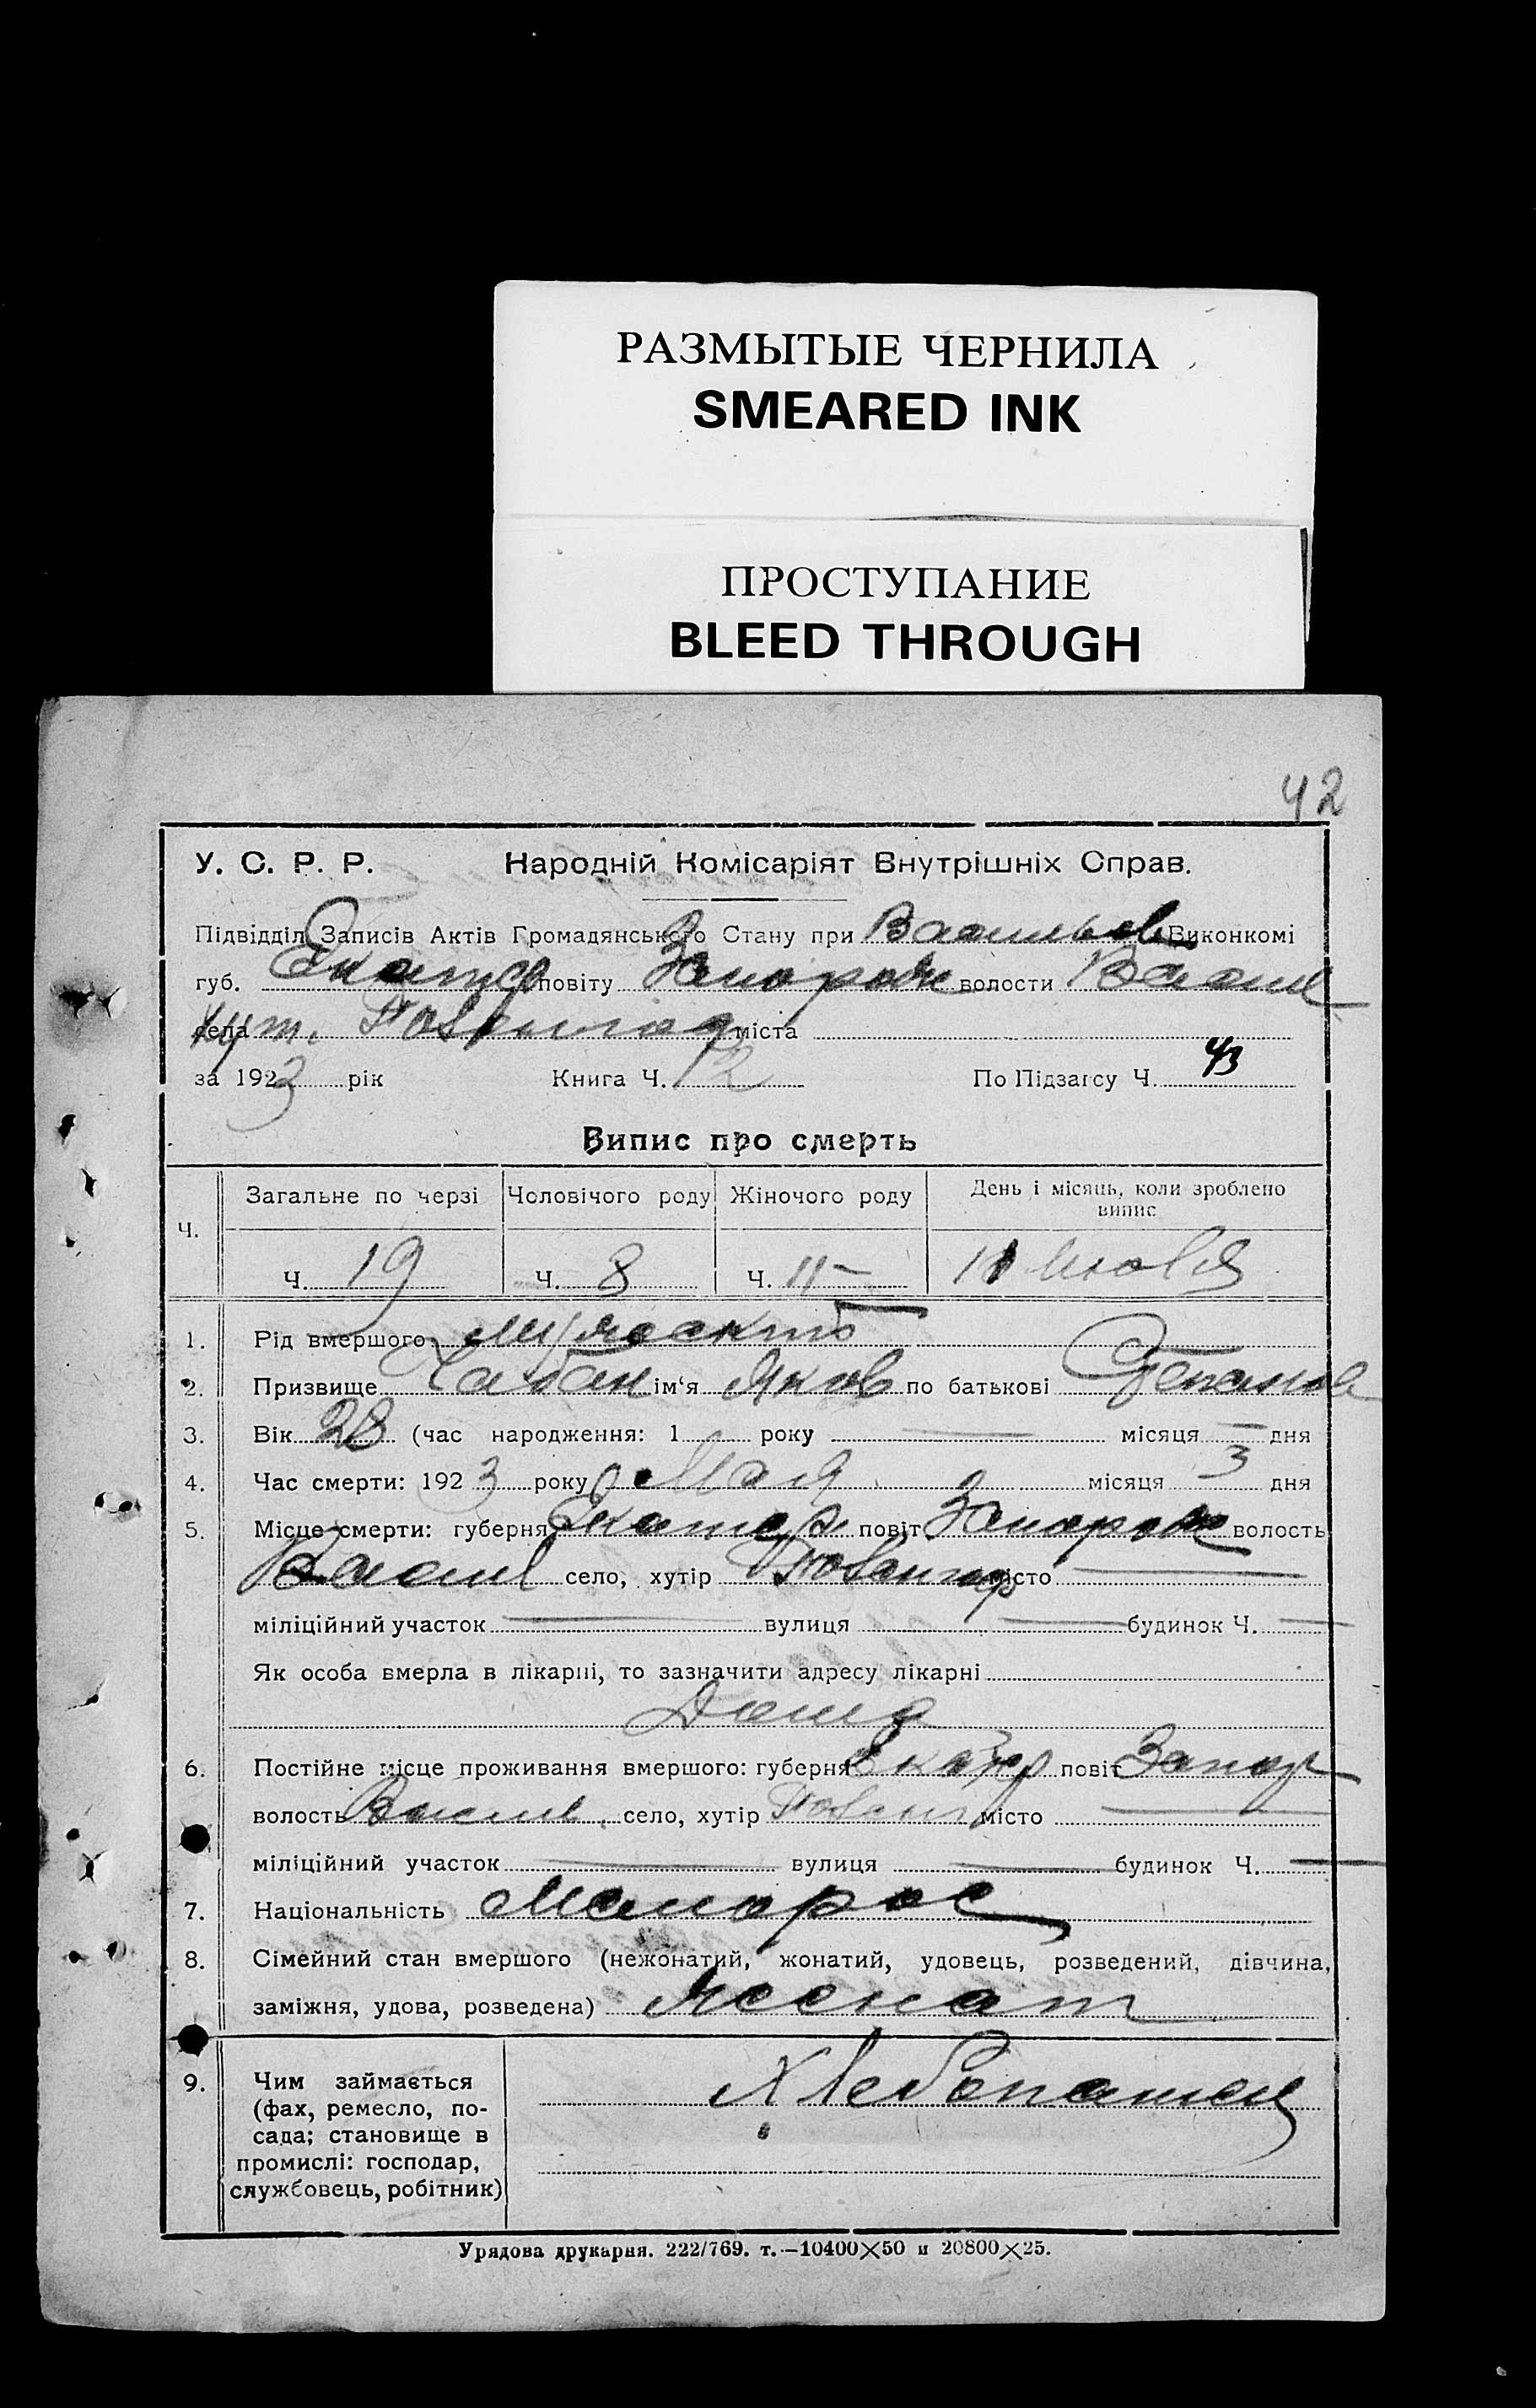 РАЗМЫТЫЕ ЧЕРНИЛА
SMEARED INK
ПРОСТУПАНИЕ
BLEED THROUGH
42
У. С. Р. Р. Народній Комісаріят Внутрішніх Справ.
Підвідділ Записів Актів Громадянського Стану при Васильев Виконкомі
губ. Екатер повіту Запорож волости Васил
села хут. міста
за 1923 рік Книга Ч. 12 По Підзагсу Ч. 43
Випис про смерть
Ч. Загальне по черзі Чоловічого роду Жіночого роду День і місяць, коли зроблено випис
Ч. 19 Ч. 8 Ч. 11 –
1. Рід вмершого: Мужского
2. Призвище Чабан ім‘я Яков по батькові Степанов
3. Вік 28 (час народження: 1 року — місяця — дня
4. Час смерти: 1923 року Мая місяця 3 дня
5. Місце смерти: губерня Екатер повіт Запорож волость
Васил село, хутір місто —
міліційний участок — вулиця — будинок Ч. —
Як особа вмерла в лікарні, то зазначити адресу лікарні
Дома
6. Постійне місце проживання вмершого: губерня Екатер повіт Запор
волость Васил село, хутір місто —
міліційний участок — вулиця — будинок Ч. —
7. Національність Малорос
8. Сімейний стан вмершого (нежонатий, жонатий, удовець, розведений, дівчина,
заміжня, удова, розведена) Женат
9. Чим займається Хлебопашец
(фах, ремесло, по-
сада; становище в
промислі: господар,
службовець, робітник)
Урядова друкарня. 222/769. т.—10400×50 и 20800×25.